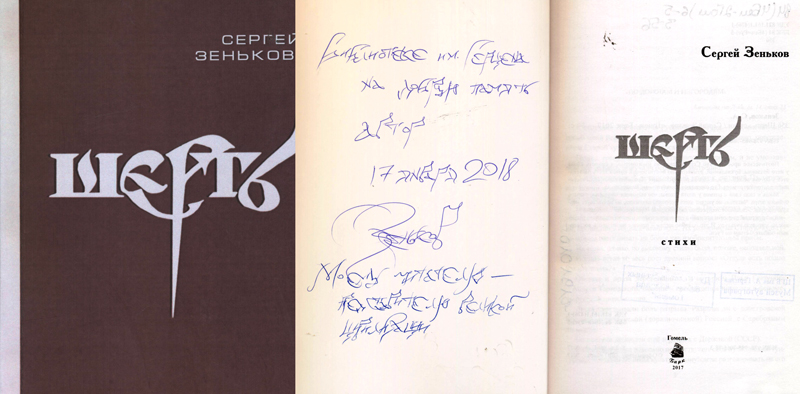 СЕРГЕЙ
ЗЕНЬКОВ
ШЕРТЬ
Библиотеке им. Герцена
на добрую память
Автор
17 января 2018
Моему читателю —
Великой
Сергей Зеньков
ШЕРТЬ
СТИХИ
Гомель
Барк
2017